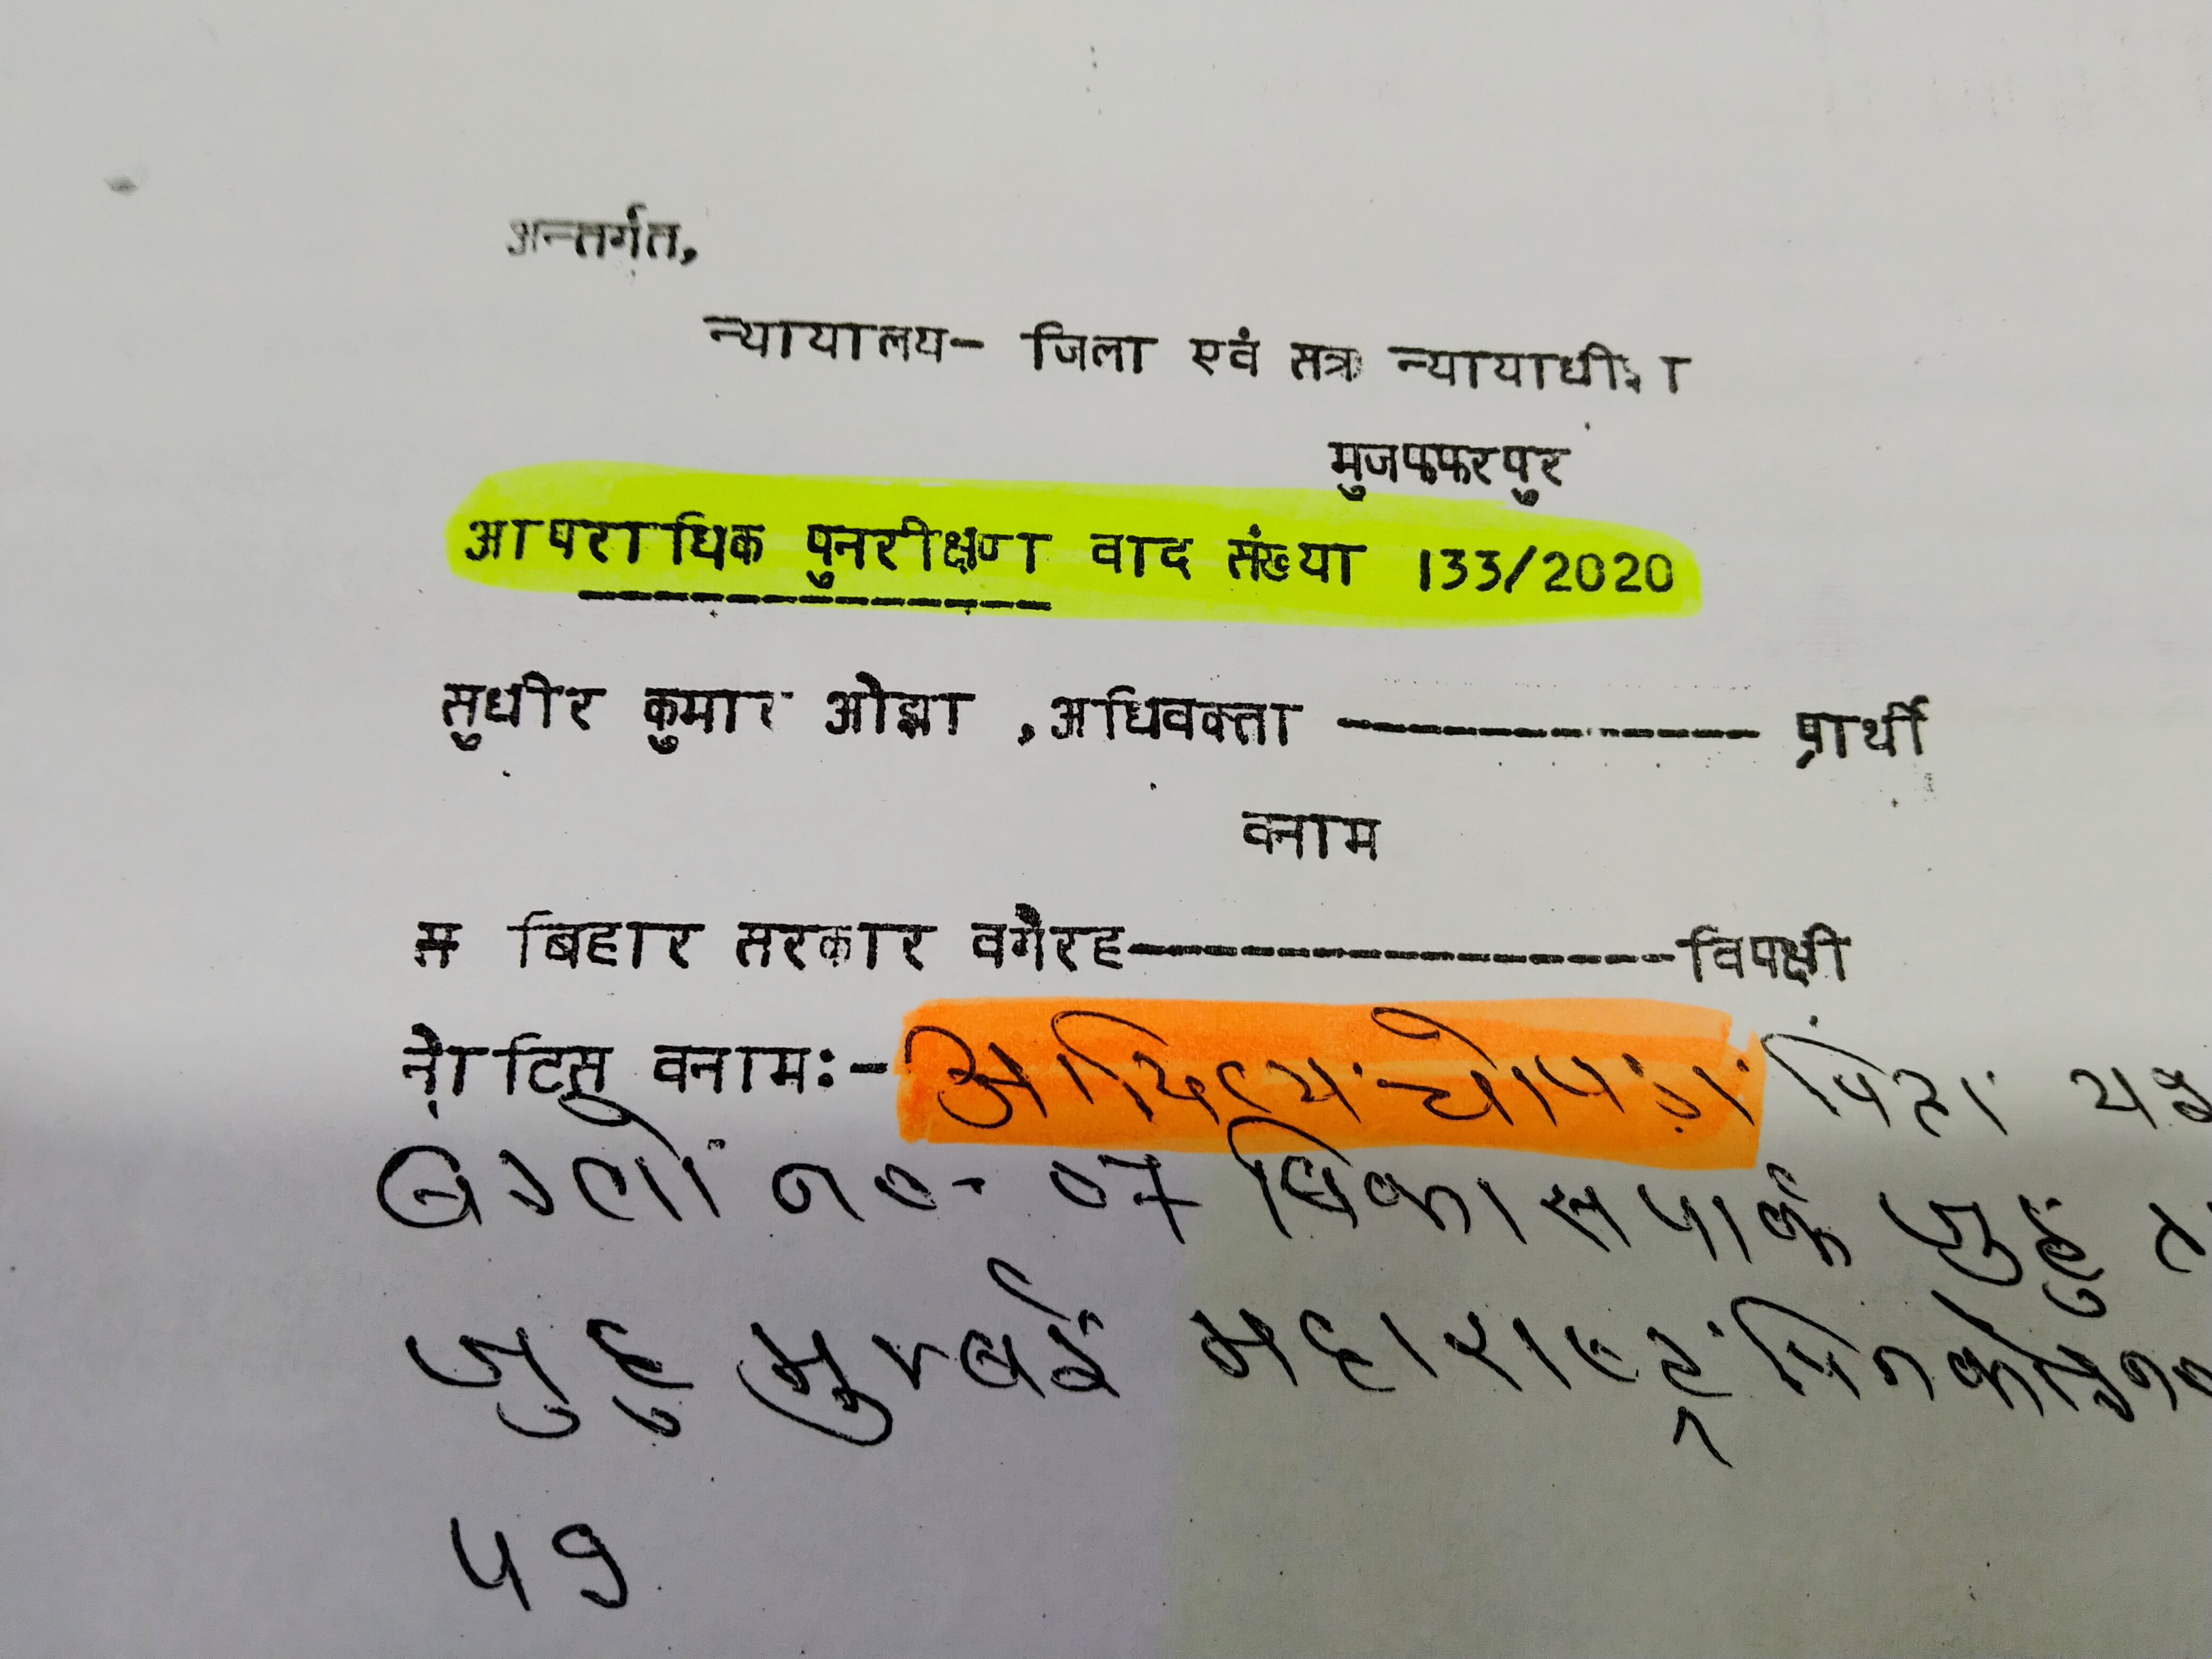 अन्तर्गत,
न्यायालय- जिला एवं सत्र न्यायाधीश
मुजफ्फरपुर
आपराधिक पुनरीक्षण वाद संख्या 133/2020
सुधीर कुमार ओझा ,अधिवक्ता ------------ प्रार्थी
वनाम
बिहार सरकार वगैरह----------------विपक्षी
नोटिस वनामः- आदित्य चोपड़ा पिता
बंगलो न०- 07 विकास पार्क जुहु
जुहु मुम्बई महाराष्ट्र पिनकोड न०
५९